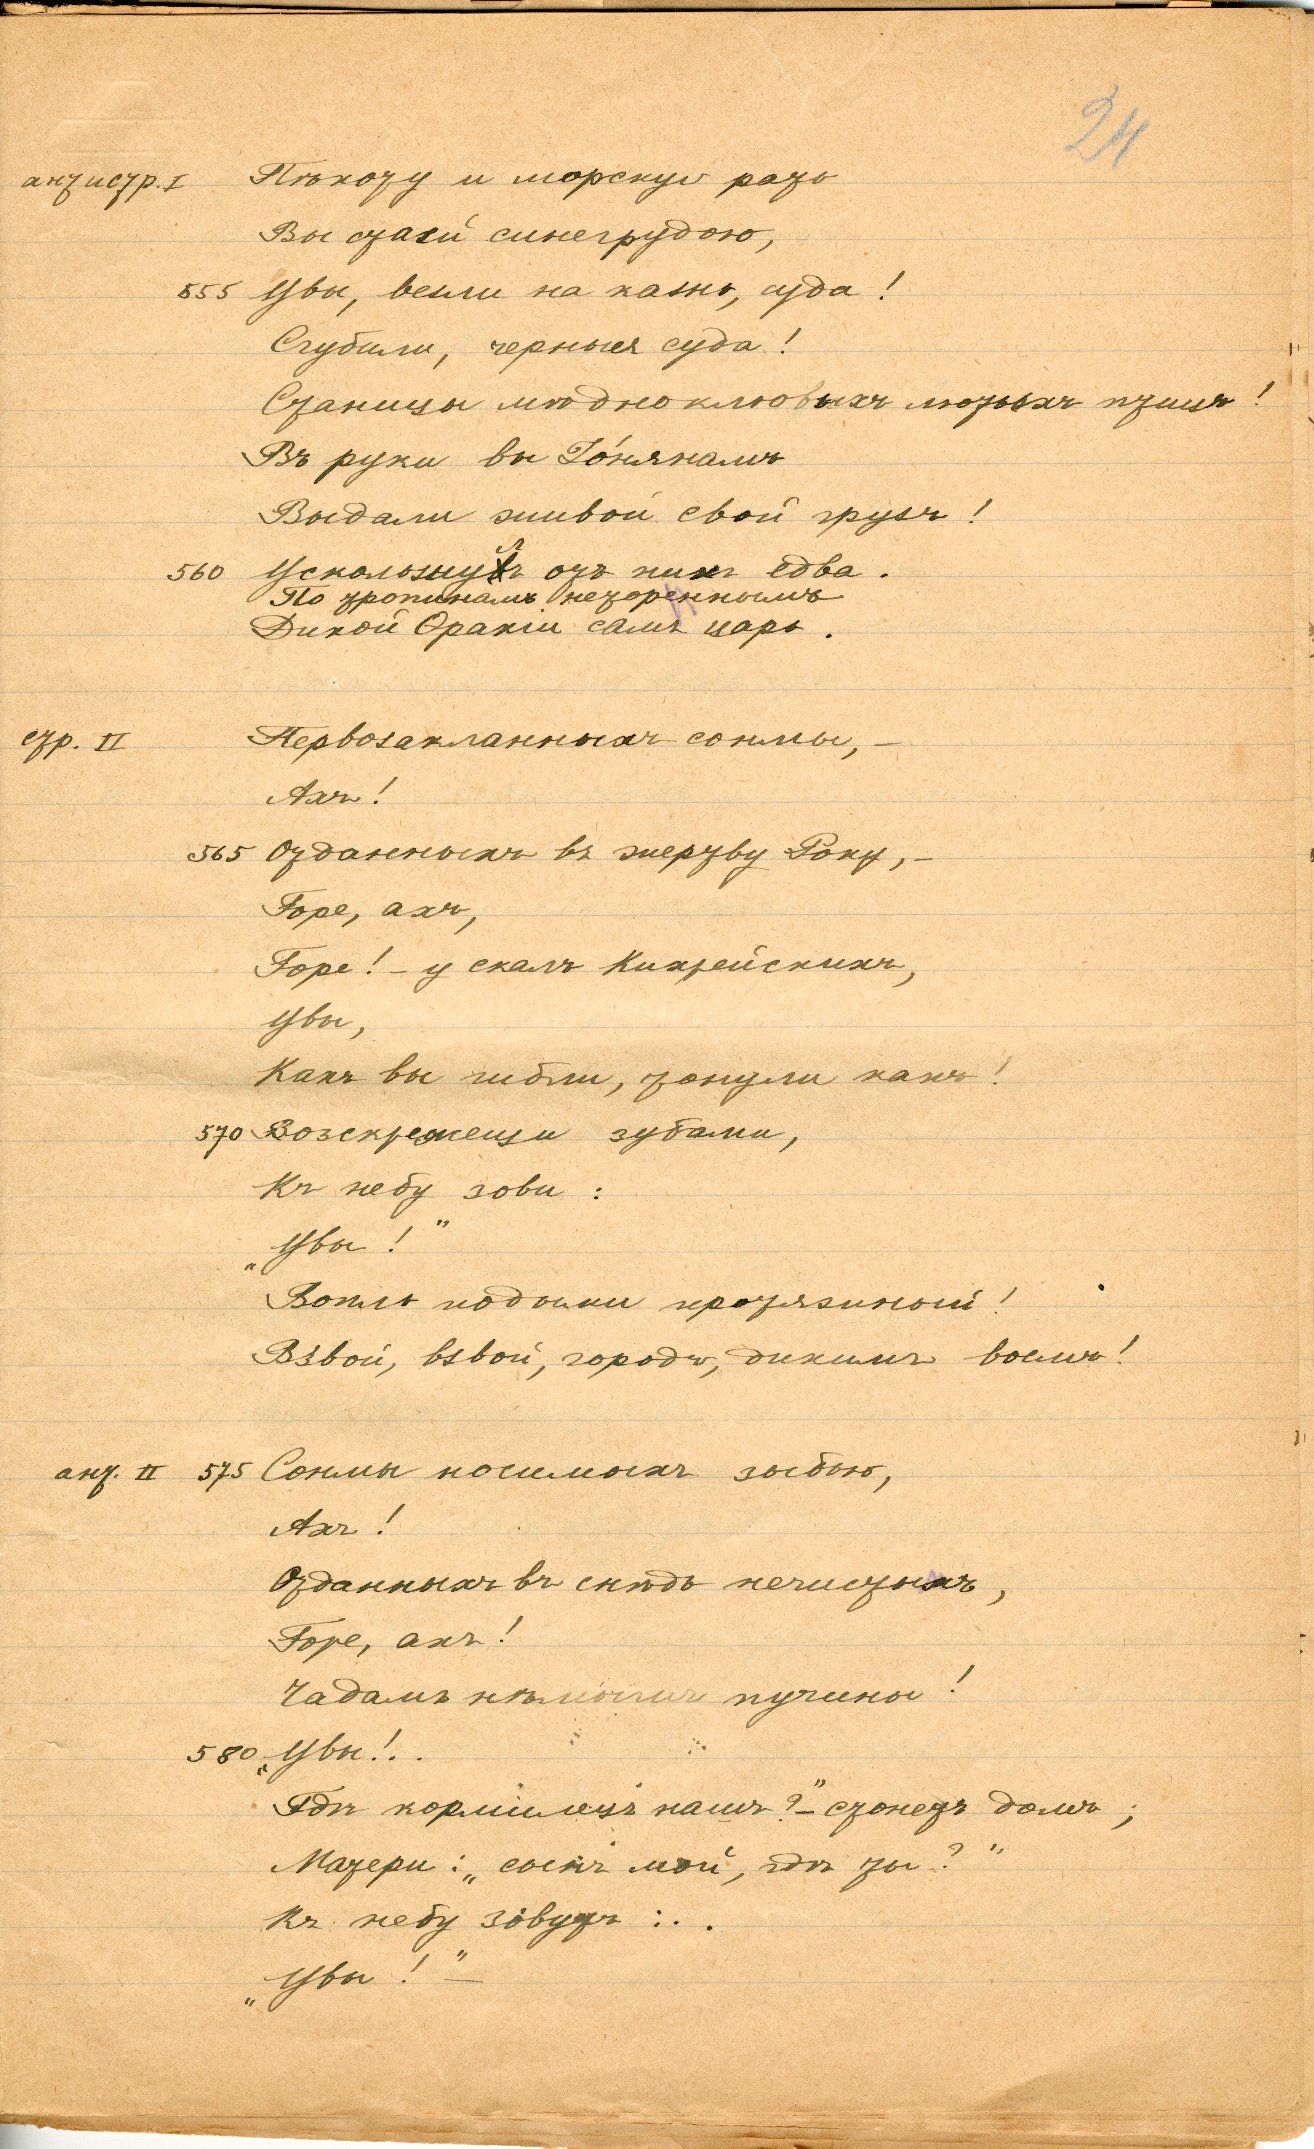 24
антистр. I Пѣхоту и морскую рать
Вы стаей синегрудою,
555 Увы, везли на казнь, суда!
Сгубили, черныя суда!
Станицы мѣдноклювыхъ лютыхъ птицъ!
Въ руки вы Іо́нянамъ
Выдали живой свой грузъ!
560 Ускользнулъ отъ нихъ едва
По тропинамъ нетореннымъ
Дикой Ѳракіи самъ царь.
стр. II Первозакланныхъ сонмы, –
Ахъ!
565 Отданныхъ въ жертву Року, –
Горе, ахъ,
Горе! – у скалъ Кихрейскихъ,
Увы,
Какъ вы гибли, тонули какъ!
570 Воскрежещи зубами,
Къ небу зови:
„Увы!"
Вопль подыми протяжный!
Взвой, взвой, городъ, дикимъ воемъ!
ант. II 575 Сонмы носимыхъ зыбью,
Ахъ!
Отданныхъ въ снѣдь нечистыхъ,
Горе, ахъ!
Чадамъ нѣмымъ пучины!
580 „Увы!..
Гдѣ кормилецъ нашъ?" – стонетъ домъ;
Матери: „сынъ мой, гдѣ ты?"
Къ небу зовутъ:..
„Увы!" –